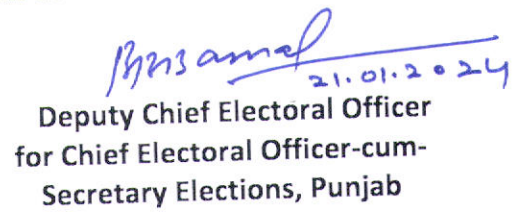 21.01.2024
Deputy Chief Electoral Officer
for Chief Electoral Officer-cum-
Secretary Elections, Punjab